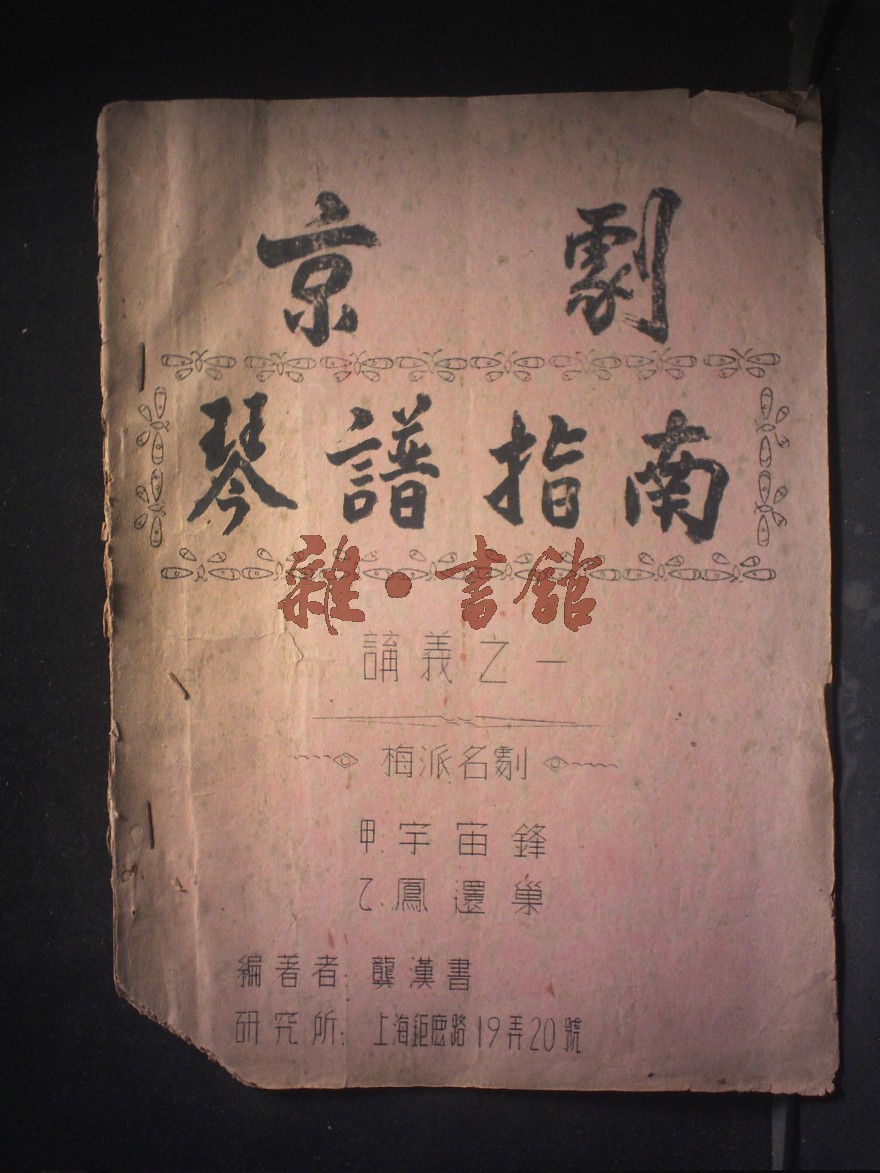 京劇
琴譜指南
雜·書館
講義之一
梅派名劇
甲.宇宙鋒
乙.鳳還巢
編著者:龔漢書
研究所:上海鉅鹿路19弄20號